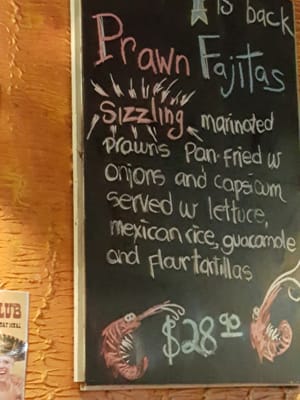 is back
Prawn Fajitas
Sizzling marinated
prawns Pan-fried w
onions and capsicum
served w lettuce,
mexican rice, guacamole
and flour tortillas
$28.90
LUB